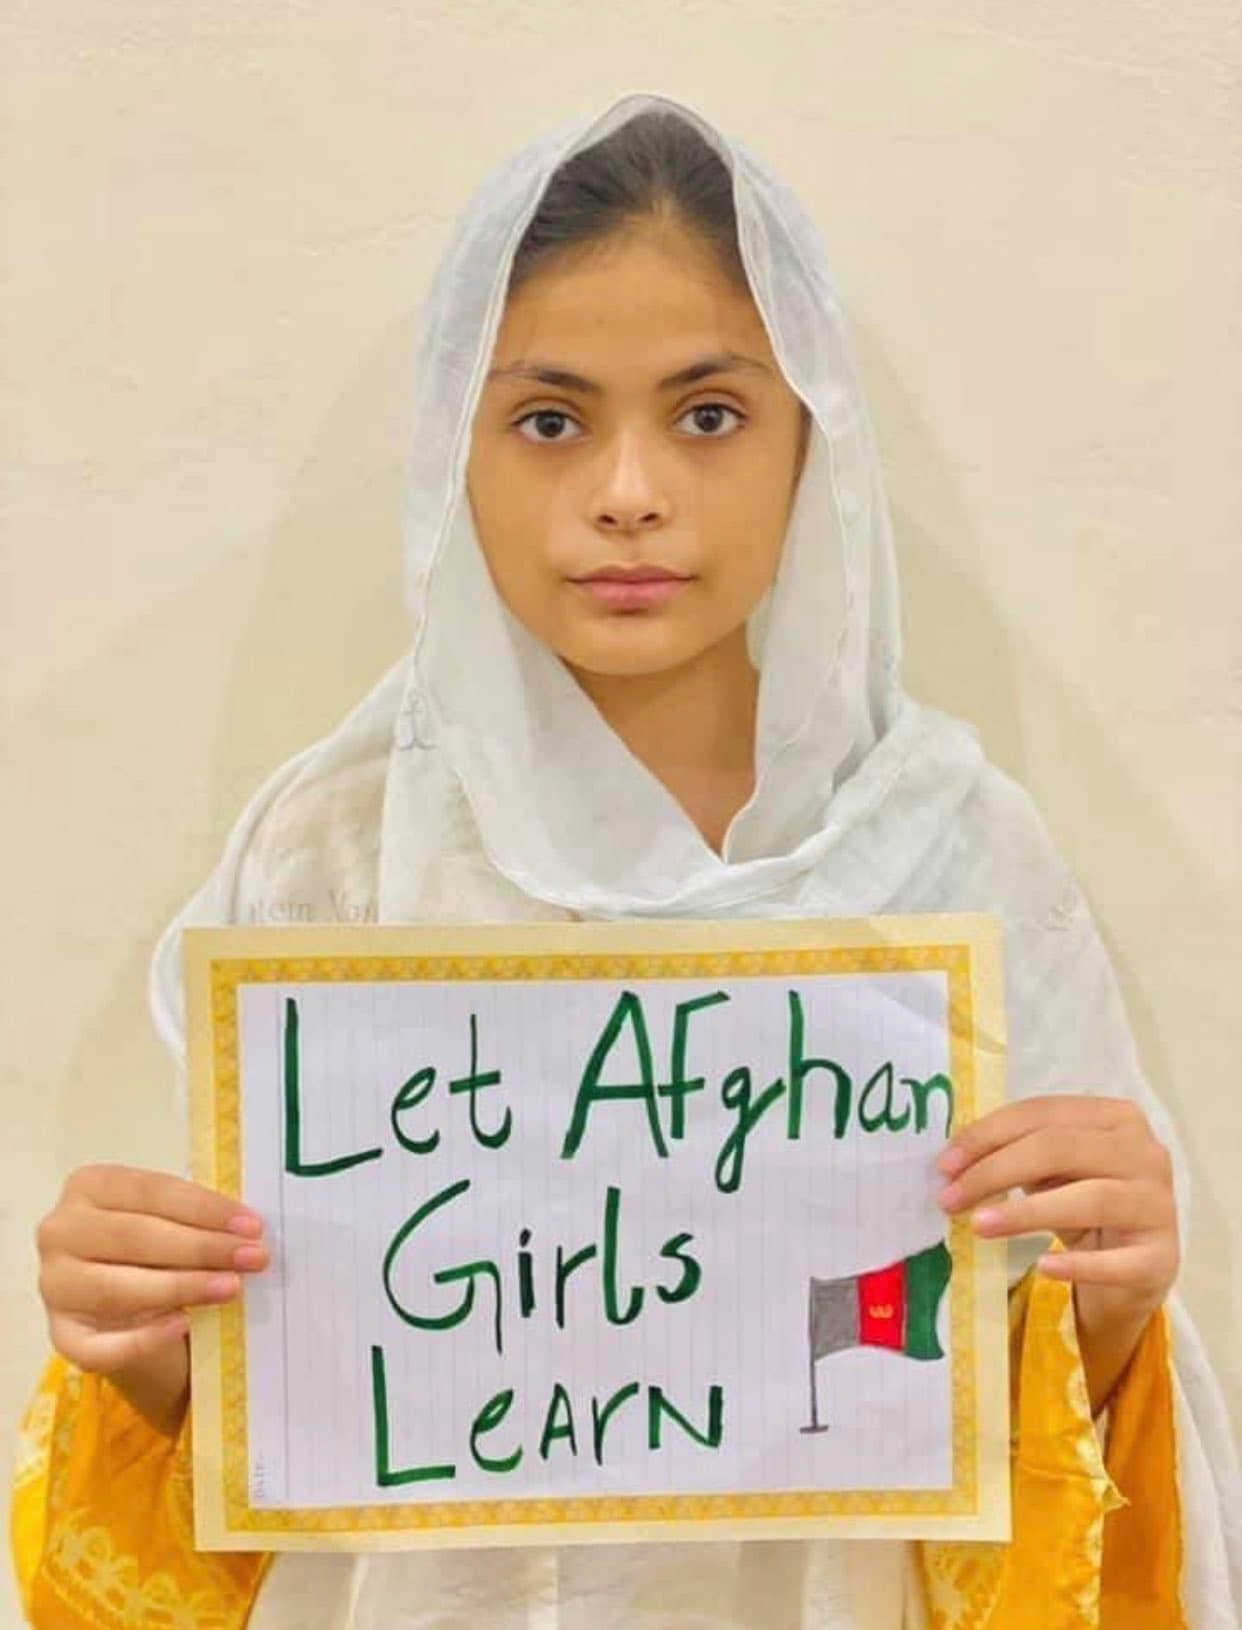 Let Afghan
Girls
Learn